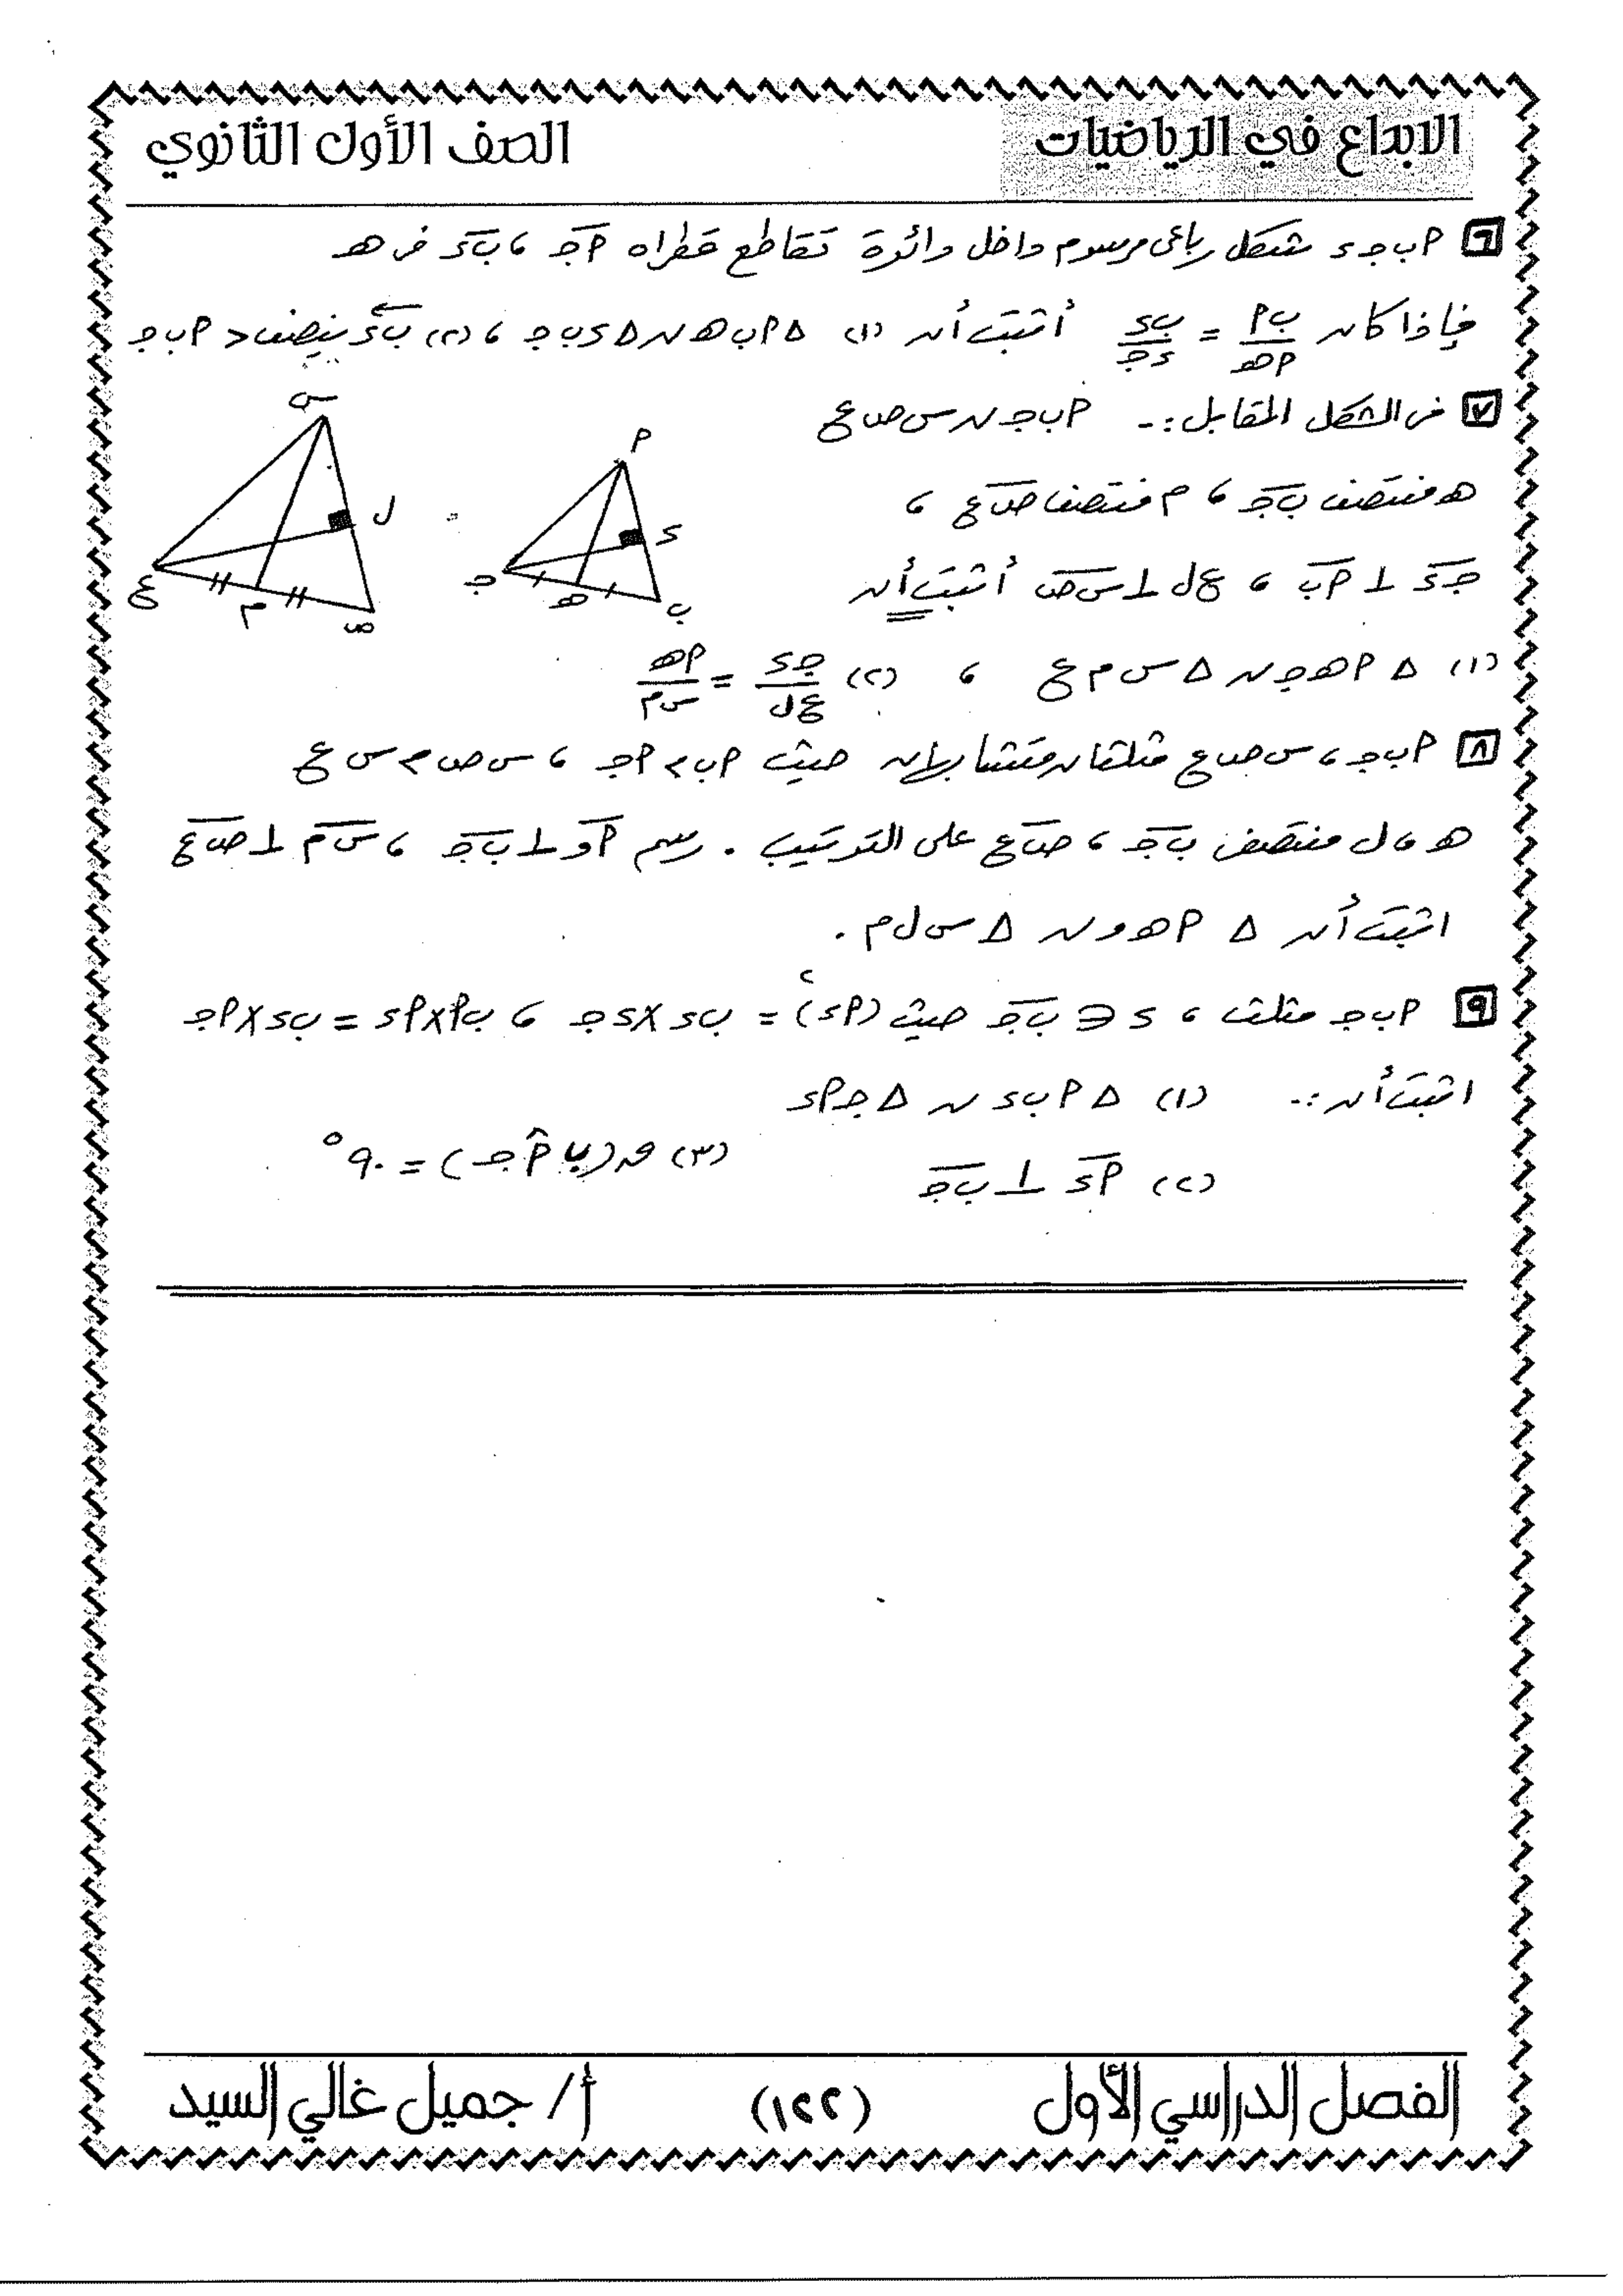 الابداع في الرياضيات
الصف الأول الثانوي
٦ ا ب جـ ء شكل رباعى مرسوم داخل دائرة تقاطع قطراه ا جـ ، ب ء فى هـ
فإذا كان ب ا / ا هـ = ب ء / ء جـ أثبت أن (١) Δ ا ب هـ ~ Δ ء ب جـ ، (٢) ب ء ينصف > ا ب جـ
٧ فى الشكل المقابل :- ا ب جـ ~ س ص ع
هـ منتصف ب جـ ، م منتصف ص ع ،
جـ ء ⊥ ا ب ، ع ل ⊥ س ص أثبت أن
(١) Δ ا هـ جـ ~ Δ س م ع ، (٢) جـ ء / ع ل = ا هـ / س م
س
ل
ع
م
ص
ا
ء
جـ
هـ
ب
٨ ا ب جـ ، س ص ع مثلثان متشابهان حيث ا ب > ا جـ ، س ص > س ع
هـ ، ل منتصف ب جـ ، ص ع على الترتيب . رسم ا و ⊥ ب جـ ، س م ⊥ ص ع
اثبت أن Δ ا هـ و ~ Δ س ل م .
٩ ا ب جـ مثلث ، ء ∈ ب جـ حيث (ا ء)² = ب ء × ء جـ ، ب ا × ا ء = ب ء × ا جـ
اثبت أن :- (١) Δ ا ب ء ~ Δ جـ ا ء
(٢) ا ء ⊥ ب جـ (٣) ق (ب ا جـ) = ٩٠°
الفصل الدراسي الأول
(١٢٢)
أ/ جميل غالي السيد